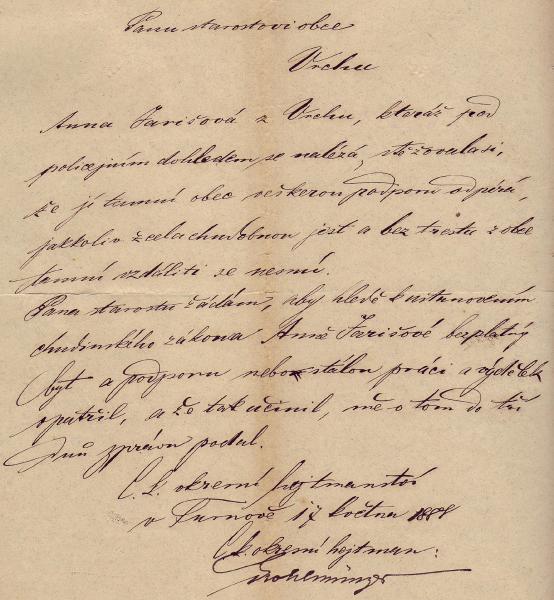 Panu starostovi obce
Vrchu
Anna Jarišová z Vrchu, kteráž pod
policejním dohledem se nalézá, stěžovala si,
že jí tamní obec veškerou podporu odpírá,
jakkoliv zcela chudobnou jest a bez trestu z obce
tamní vzdáliti se nesmí.
Pana starostu žádám, aby hledě k ustanovením
chudinského zákona Anně Jarišové bezplatný
byt a podporu nebo stálou práci a výdělek
opatřil, a že tak učinil, mě o tom do tří
dnů zprávu podal.
C. k. okresní hejtmanství
v Turnově 17 května
C. k. okresní hejtman: